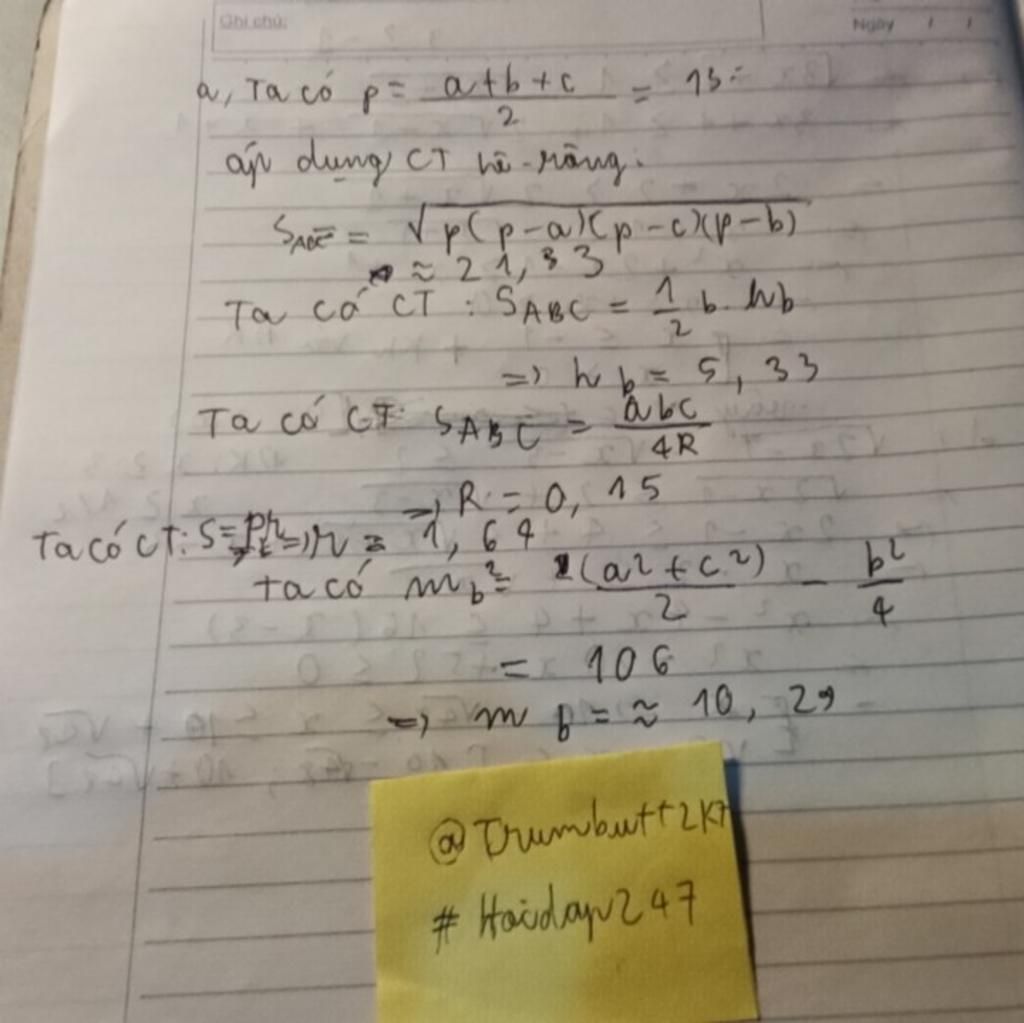 Ghi chú:
Ngày / /
a, Ta có p = (a+b+c)/2 = 13
áp dụng CT hê-rông.
S_ABC = √p(p-a)(p-c)(p-b)
≈ 21,33
Ta có CT: S_ABC = 1/2 b.hb
=> h b = 5,33
Ta có CT: S_ABC = abc/4R
=> R = 0,15
Ta có CT: S= pr => r = 1,64
ta có m_b² = 2(a²+c²)/2 - b²/4
= 106
=> m b = ≈ 10,29
@Trumbutt2k7
# Hoidap247